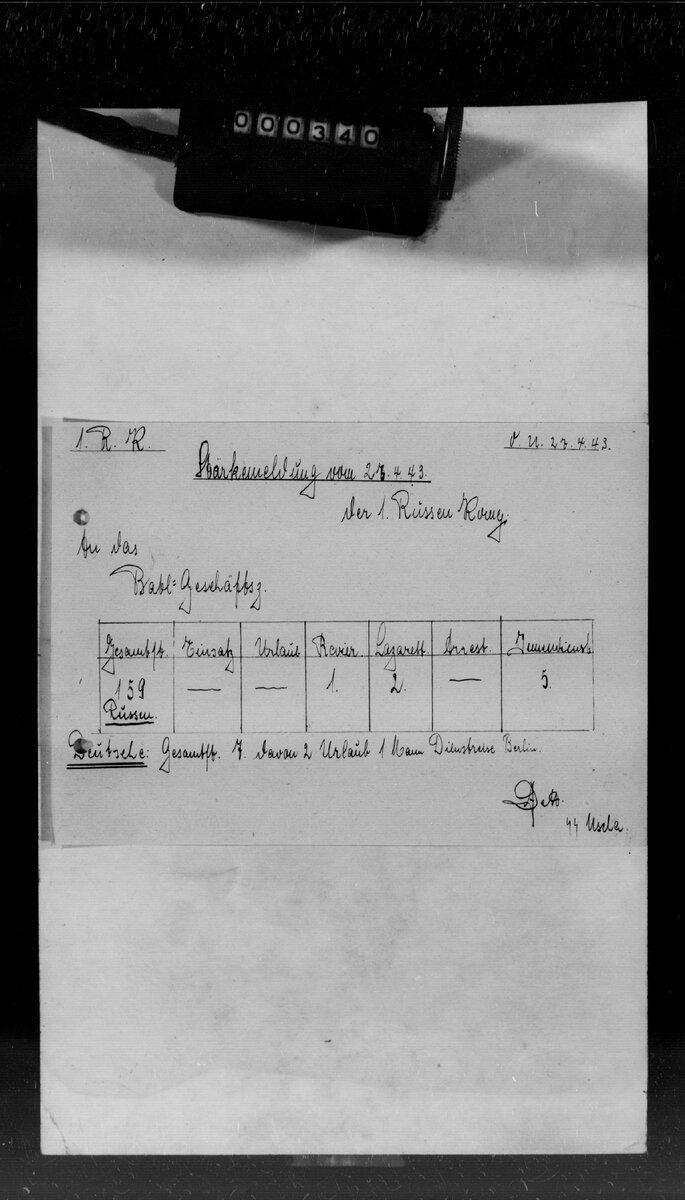 000340
1. R. K. O. U. 27.4.43.
Stärkemeldung vom 27.4.43.
der 1. Russen Komp.
An das
Batl=Geschäftsz.
Gesamtst. Einsatz Urlaub Revier. Lazarett. Arrest. Innendienst
159 — — 1. 2. — 5.
Russen.
Deutsche: Gesamtst. 7. davon 2 Urlaub 1 Mann Dienstreise Berlin.
ϟϟ Uscha.